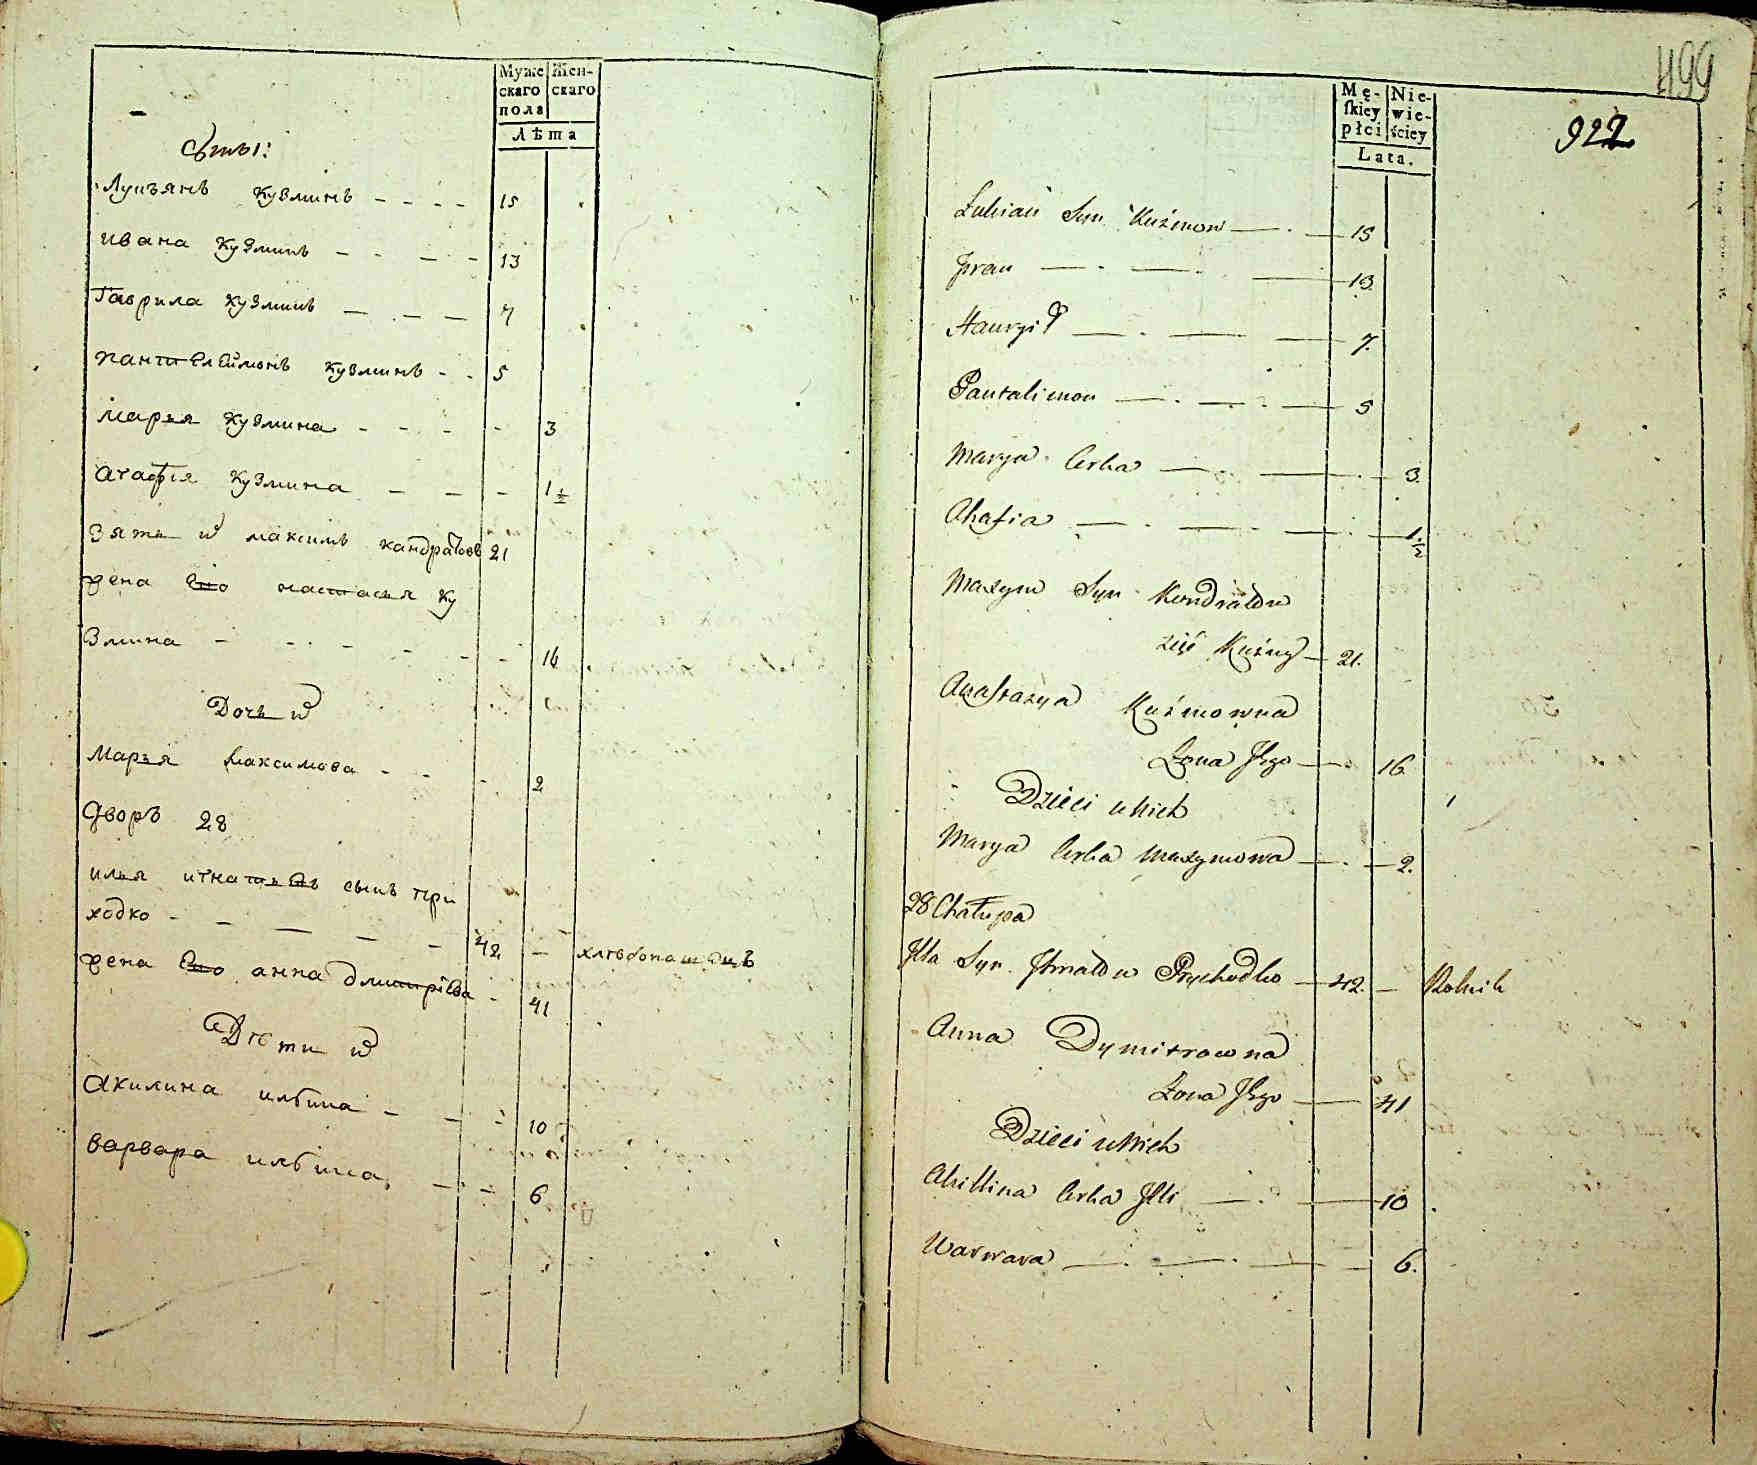 Мужескаго пола
Женскаго
Лѣта
Лукъянъ кузминъ 15
ивана кузминъ 13
Гаврила кузминъ 7
пантелеймонъ кузминъ 5
марья кузмина 3
агафія кузмина 1 1/2
зять и максимъ кандратовъ 21
жена его настасья ку
змина 16
Дочь и
марья максимова 2
дворъ 28
илья игнатьевъ сынъ при
ходко 42 хлѣбопашецъ
жена его анна дмитріева 41
Дѣти и
акилина ильина 10
варвара ильина 6
499
922
Mę-skiey płci
Nie-wie-ściey
Lata.
Łukian Syn Kuźmow 15
Jwan 13
Hawryił 7.
Pantalimon 5
Marya Corka 3.
Ahafia 1 1/2
Maxym Syn Kondratow
zięć Kuźmy 21.
Anastazya Kuźmowna
Żona Jego 16
Dzieci u Nich
Marya Corka Maxymowa 2.
28 Chałupa
Jlla Syn Jhnatow Prychodko 42. Rolnik
Anna Dymitrowna
Żona Jego 41
Dzieci u Nich
Akillina Corka Jlli 10
Warwara 6.